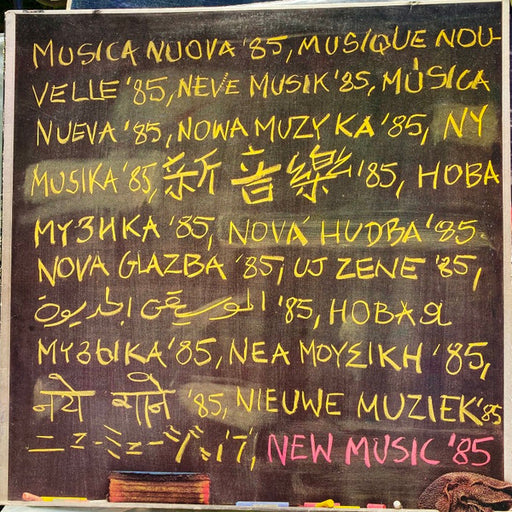 MUSICA NUOVA '85, MUSIQUE NOU-
VELLE '85, NEVE MUSIK '85, MÚSICA
NUEVA '85, NOWA MUZYKA '85, NY
MUSIKA '85, 新音樂 '85, НОВА
МУЗИКА '85, NOVÁ HUDBA '85.
NOVA GLAZBA '85, UJ ZENE '85,
'85, НОВАЯ
МУЗЫКА '85, ΝΕΑ ΜΟΥΣΙΚΗ '85,
नये गाने '85, NIEUWE MUZIEK '85
ニュ-ミュ-ジ, NEW MUSIC '85